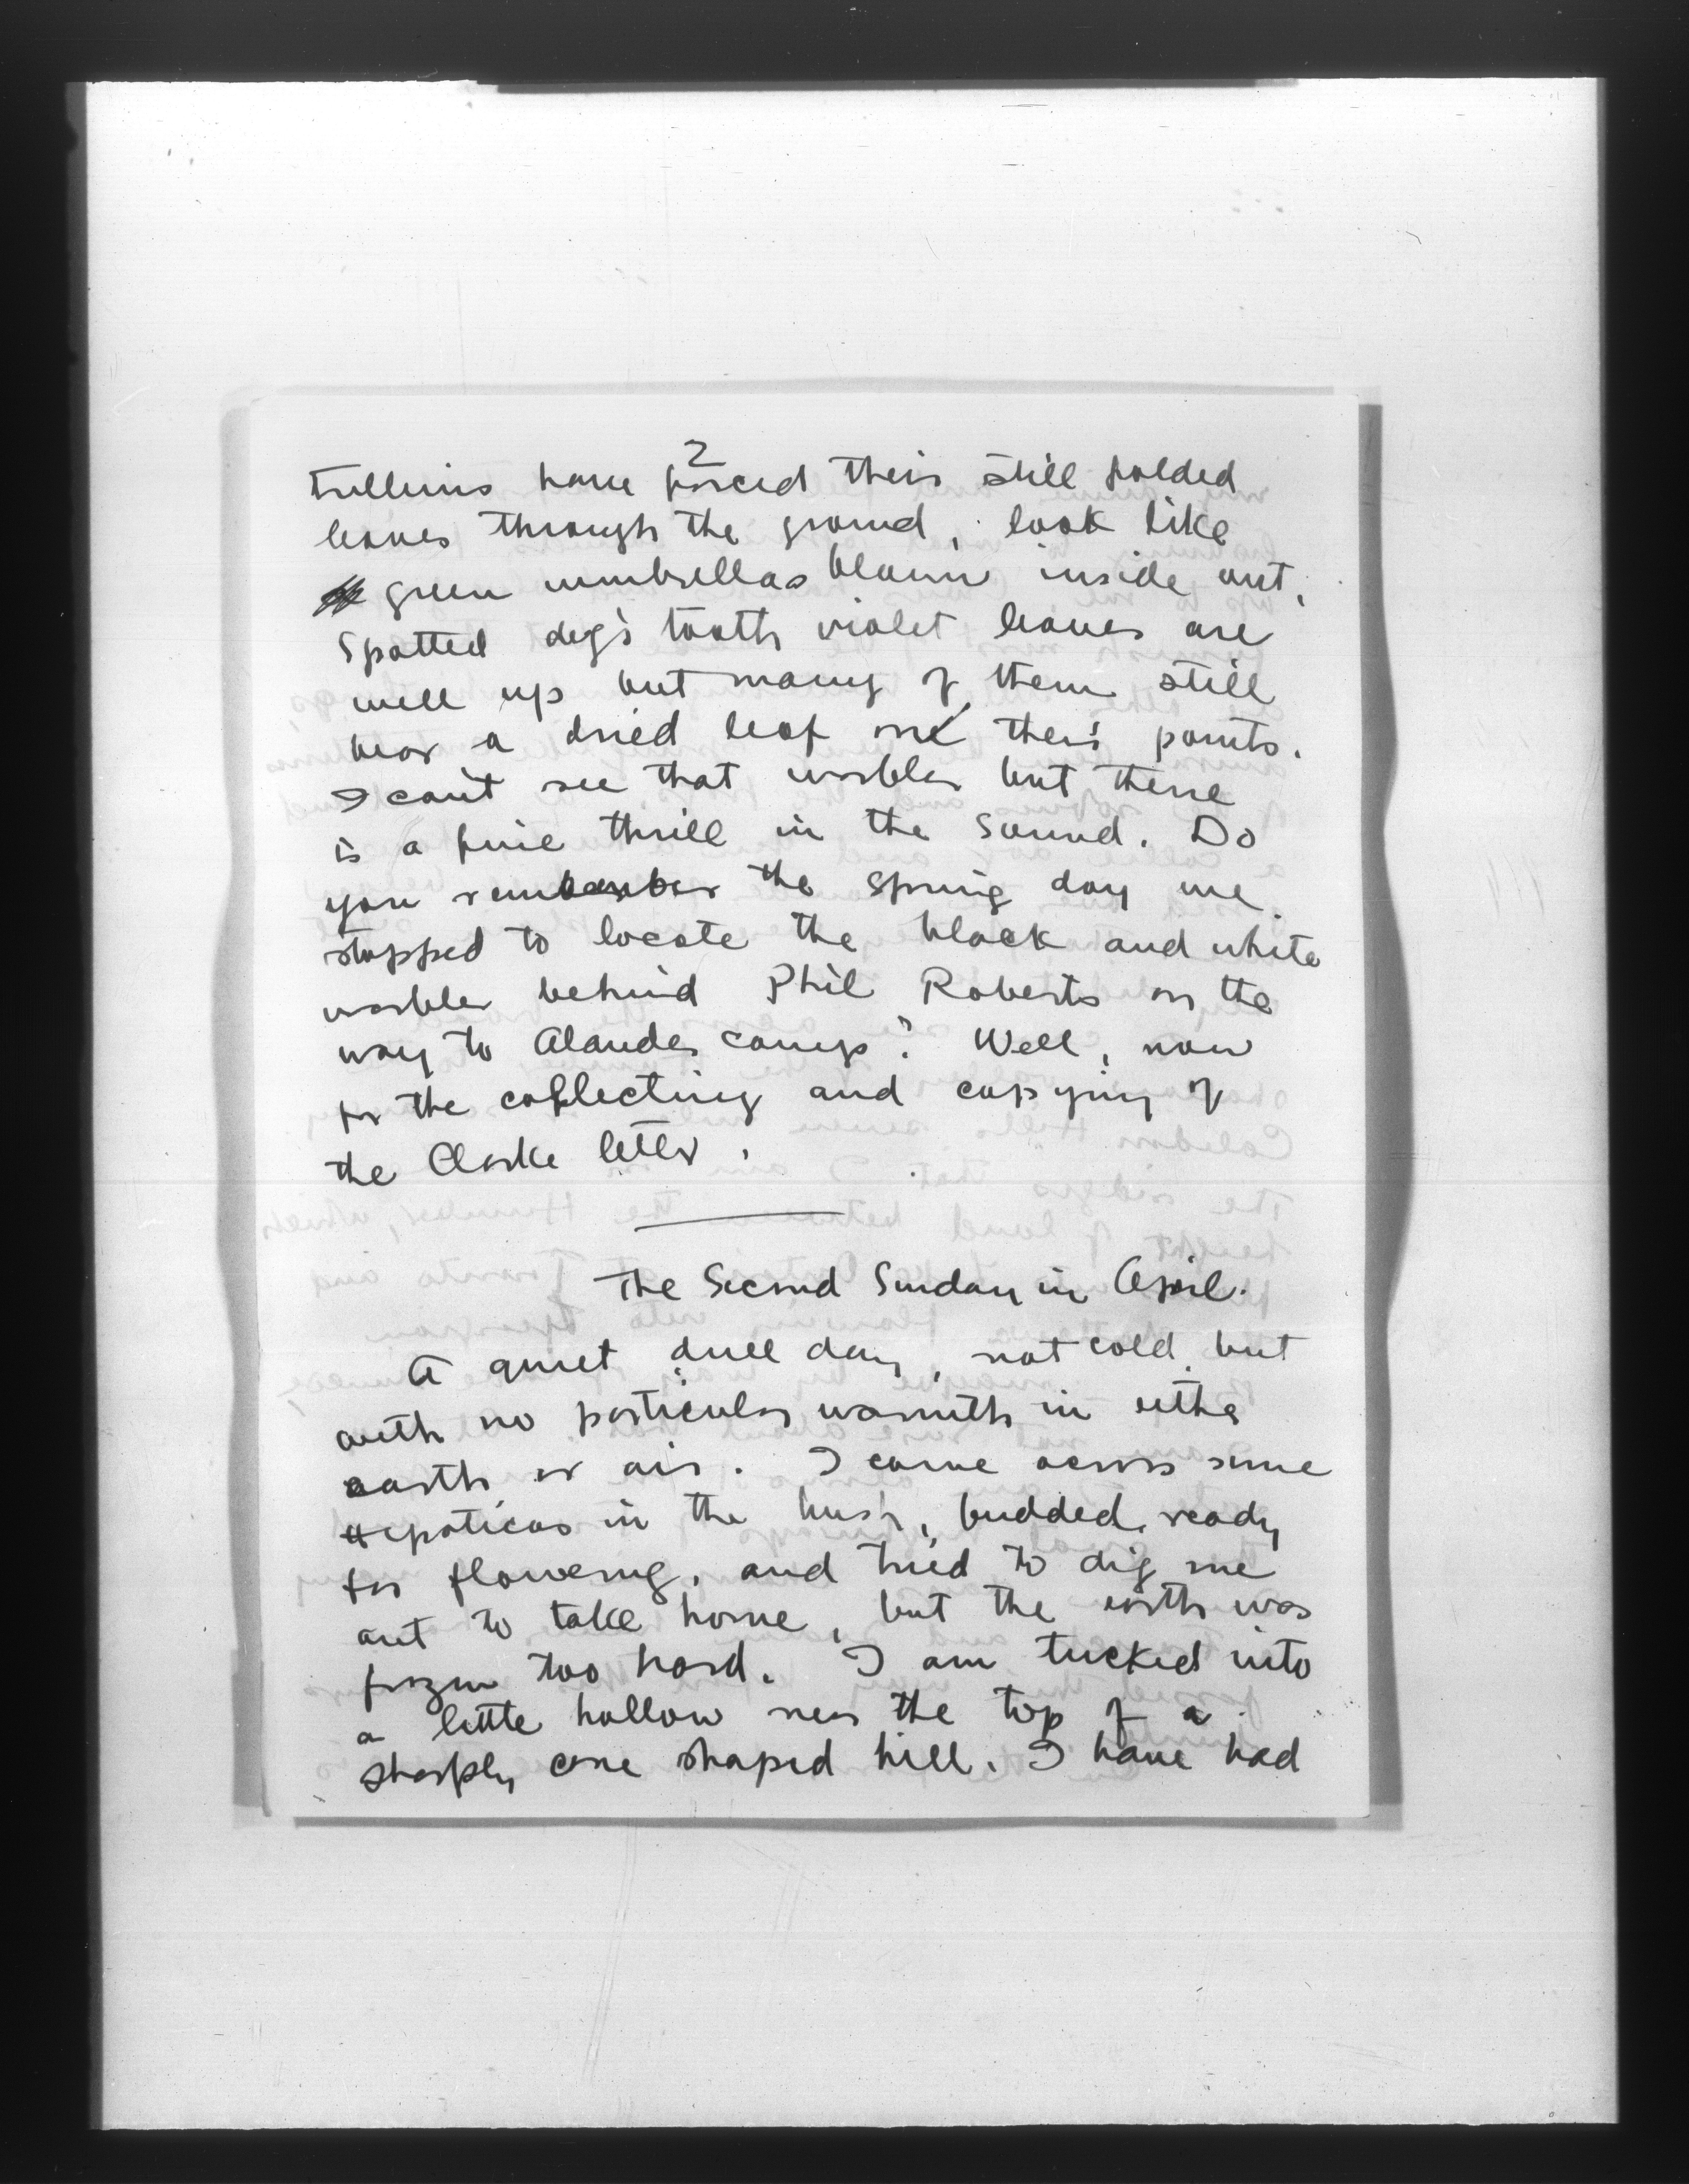 2
Trilliums have forced their still folded
leaves through the ground, look like
green umbrellas blown inside out,
Spotted dog's tooth violet leaves are
well up but many of them still
bear a dried leaf on their points.
I can't see that warbler but there
is a fine thrill in the sound. Do
you remember the spring day we
stopped to locate the black and white
warbler behind Phil Roberts on the
way to camp? Well, now
for the collecting and copying of
the Clarke letter.
The Second Sunday in April.
A quiet dull day, not cold, but
with no particular warmth in either
earth or air. I came across some
Hepaticas in the bush, budded, ready
for flowering, and tried to dig one
out to take home, but the earth was
frozen too hard. I am tucked into
a little hollow near the top of a
sharply cone shaped hill. I have had